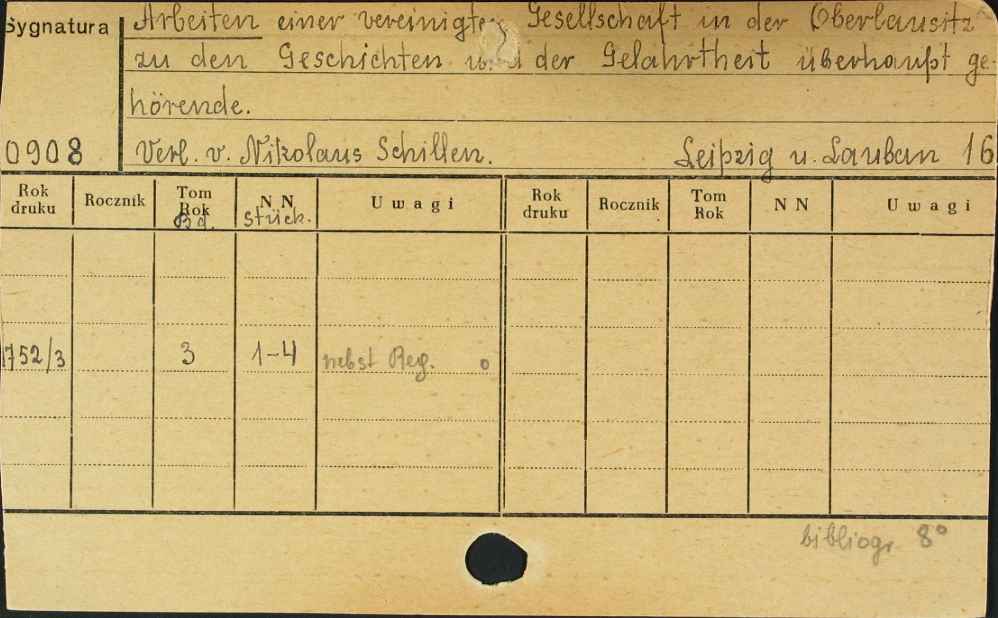 Sygnatura Arbeiten einer vereinigten Gesellschaft in der Oberlausitz
zu den Geschichten und der Gelahrtheit überhaupt ge-
hörende.
0908 Verl. v. Nikolaus Schillen. Leipzig u. Lauban 16
Rok druku Rocznik Tom Rok Bd. NN Stück. Uwagi Rok druku Rocznik Tom Rok NN Uwagi
1752/3 3 1-4 nebst Reg. o
bibliogr. 8°